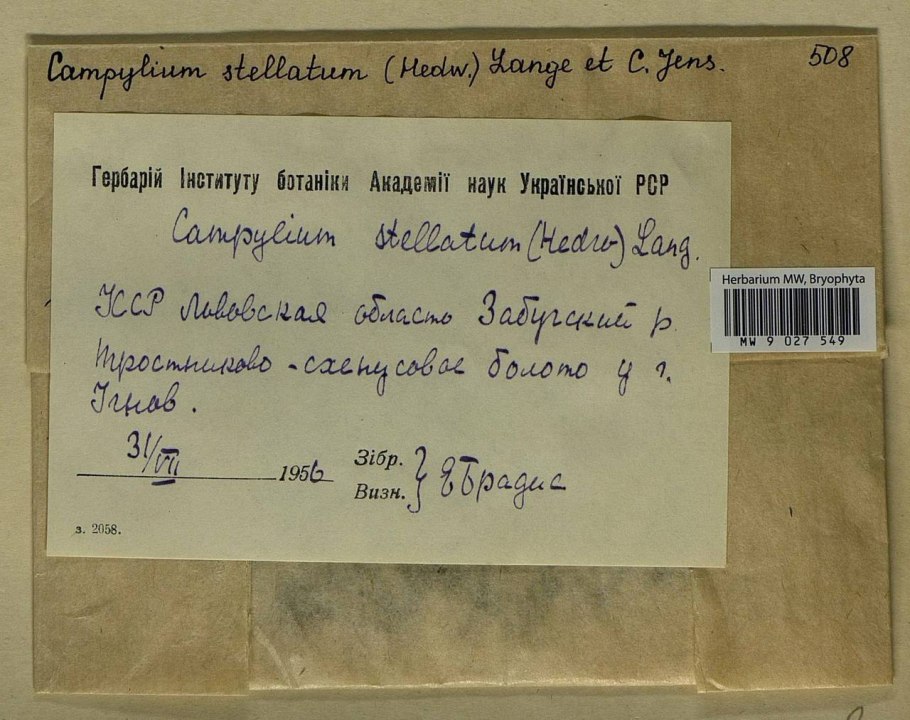 Campylium stellatum (Hedw.) Lange et C. Jens. 508
Гербарій Інституту ботаніки Академії наук Української РСР
Campylium stellatum (Hedw) Lang.
УССР Львовская область Забугский р.
Тростниково-схенусовое болото у г.
Угнов.
31/VII 1956
Зібр.
Визн. } Е Брадис
з. 2058.
Herbarium MW, Bryophyta
MW 9 027 549